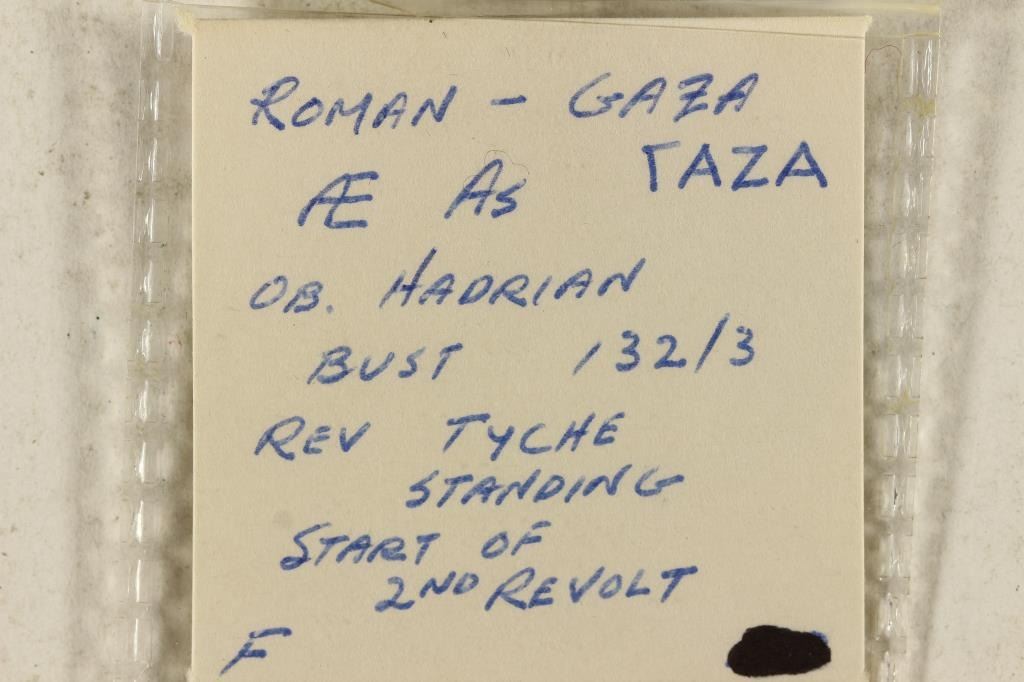 ROMAN - GAZA
ΓAZA
Æ As
OB. HADRIAN
BUST 132/3
REV TYCHE
STANDING
START OF
2ND REVOLT
F